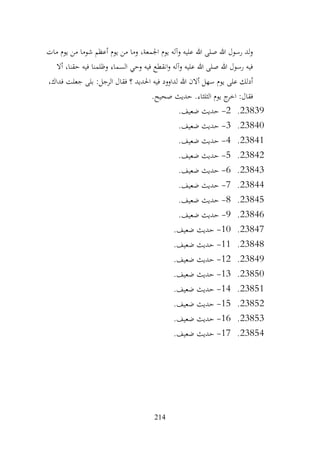 ولد رسول الله صلى الله عليه وآله يوم الجمعة، وما من يوم أعظم شوما من يوم مات
فيه رسول الله صلى الله عليه وآله وانقطع فيه وحي السماء وظلمنا فيه حقنا، ألا
أدلك على يوم سهل ألان الله لداوود فيه الحديد ؟ فقال الرجل: بلى جعلت فداك،
فقال: اخرج يوم الثلثاء. حديث صحيح.
23839. 2- حديث ضعيف.
23840. 3- حديث ضعيف.
23841. 4- حديث ضعيف.
23842. 5- حديث ضعيف.
23843. 6- حديث ضعيف.
23844. 7- حديث ضعيف.
23845. 8- حديث ضعيف.
23846. 9- حديث ضعيف.
23847. 10- حديث ضعيف.
23848. 11- حديث ضعيف.
23849. 12- حديث ضعيف.
23850. 13- حديث ضعيف.
23851. 14- حديث ضعيف.
23852. 15- حديث ضعيف.
23853. 16- حديث ضعيف.
23854. 17- حديث ضعيف.
214